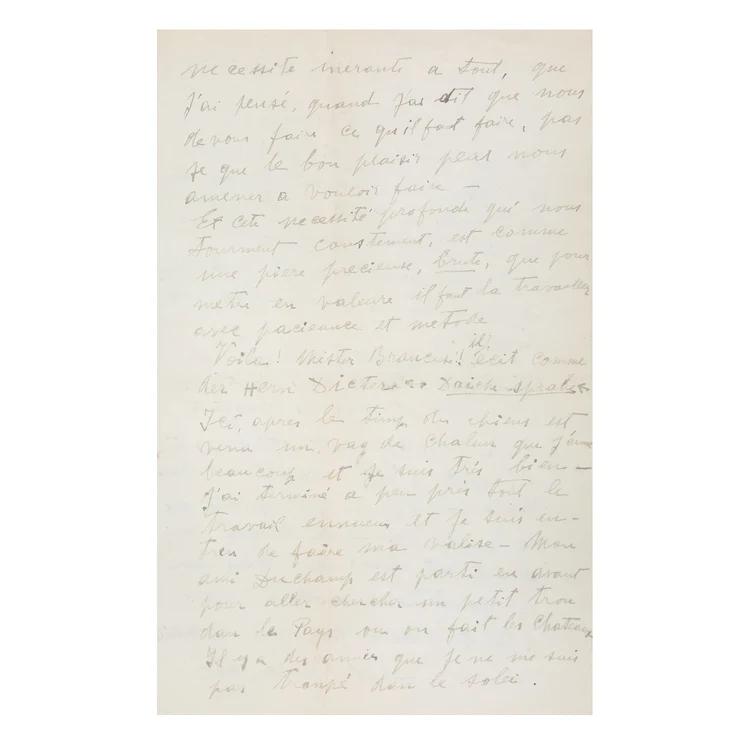 necessite inerante a tout, que
j'ai pensé, quand j'ai dit que nous
devons faire ce qu'il faut faire, pas
se que le bon plaisir peut nous
amener a vouloir faire —
Et cete necessité profonde qui nous
tourment constement, est comme
une piere precieuse, brute, que pour
metre en valeure il faut la travailler
avec pacieance et metode
Voila! Mister Brancusi!! il! ecit comme
der Herr Dicter Daiche sprake
Ici, apres le temp de chiens est
venu un vag de chaleur que j'aime
beaucoup et je suis trés bien —
J'ai terminé a peu près tout le
travail ennueux et je suis en-
tren de faère ma valise — Mon
ami Duchamp est parti en avant
pour aller chercher un petit trou
dan le Pays ou on fait les Chateaux
Il y a des anneés que je ne me suis
pas trempé dan le solei.